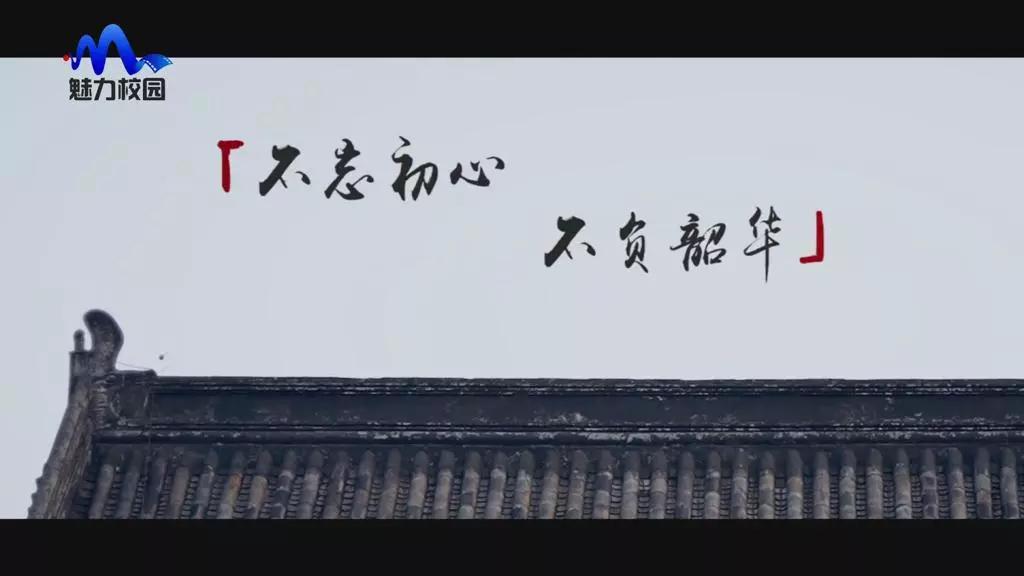 魅力校园
「不忘初心
不负韶华」